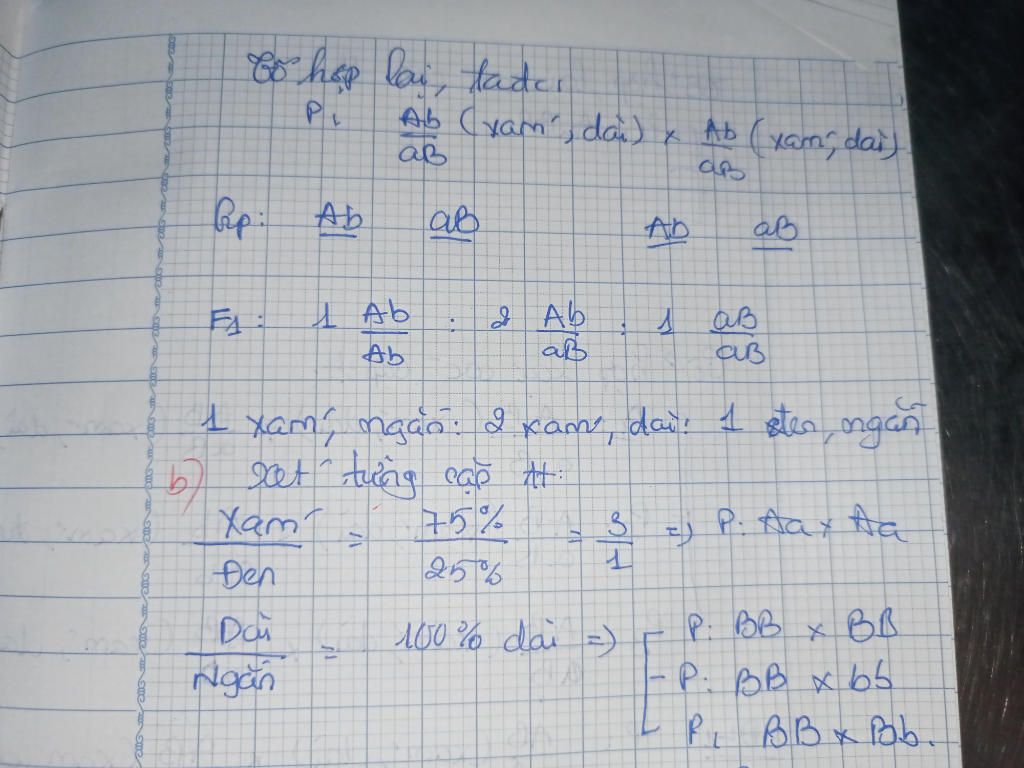 Từ hợp lai, ta đc:
P: Ab/aB (xám, dài) x Ab/aB (xám, dài)
Gp: Ab aB Ab aB
F1: 1 Ab/Ab : 2 Ab/aB : 1 aB/aB
1 xám, ngắn: 2 xám, dài: 1 đen, ngắn
b) Xét từng cặp tt:
Xám/Đen = 75%/25% = 3/1 => P: Aa x Aa
Dài/Ngắn = 100% dài => P: BB x BB
P: BB x bb
P: BB x Bb.